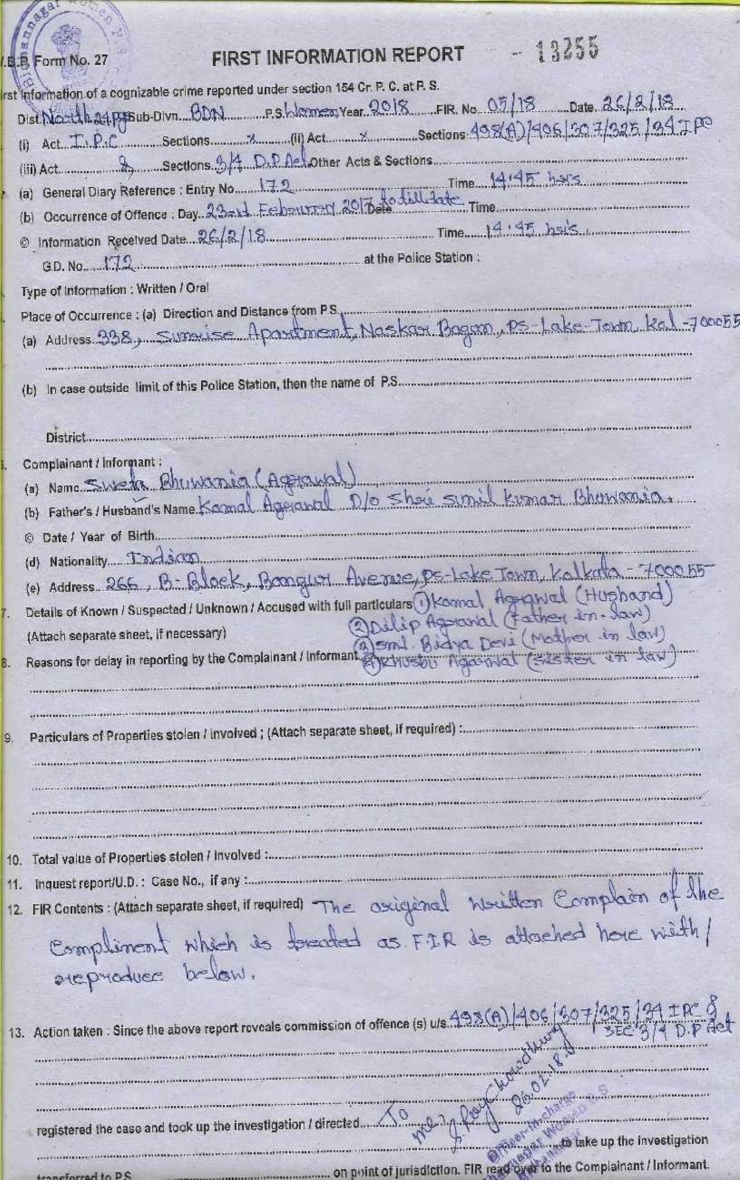 Bidhannagar Women P.S.
W.B.P. Form No. 27
FIRST INFORMATION REPORT - 13255
First Information of a cognizable crime reported under section 154 Cr. P. C. at P. S.
Dist North 24 Pgs Sub-Divn. BDN P.S. Women Year 2018 FIR. No. 05/18 Date 26/2/18
(i) Act I.P.C Sections x (ii) Act x Sections 498(A)/406/307/325/34 IPC
(iii) Act & Sections 3/4 D.P Act Other Acts & Sections
(a) General Diary Reference : Entry No. 172 Time 14:45 hrs
(b) Occurrence of Offence : Day 23rd February 2017 Date to till date Time
© Information Received Date 26/2/18 Time 14:45 hrs
G.D. No. 172 at the Police Station :
Type of Information : Written / Oral
Place of Occurrence : (a) Direction and Distance from P.S.
(a) Address 338, Sunrise Apartment, Naskar Bagan, PS-Lake-Town, Kol -700055
(b) In case outside limit of this Police Station, then the name of P.S.
District
Complainant / Informant :
(a) Name Sweta Bhuwania (Agrawal)
(b) Father's / Husband's Name Kamal Agrawal D/o Shri Sunil Kumar Bhuwania.
© Date / Year of Birth
(d) Nationality Indian
(e) Address 266, B-Block, Bangur Avenue, PS-Lake Town, Kolkata - 700055
7. Details of Known / Suspected / Unknown / Accused with full particulars ① Kamal Agrawal (Husband)
② Dilip Agrawal (Father in-law)
(Attach separate sheet, if necessary) ③ Smt. Bidya Devi (Mother in law)
8. Reasons for delay in reporting by the Complainant / Informant ④ Khusbu Agarwal (Sister in law)
9. Particulars of Properties stolen / involved ; (Attach separate sheet, if required) :
10. Total value of Properties stolen / involved :
11. Inquest report/U.D. : Case No., if any :
12. FIR Contents : (Attach separate sheet, if required) The original written Complain of the
Compliment which is treated as F.I.R is attached here with /
reproduce below.
13. Action taken : Since the above report reveals commission of offence (s) u/s 498(A)/406/307/325/34 IPC &
SEC 3/4 D.P Act
registered the case and took up the investigation / directed To me.
S. Ray Chowdhury
26.02.18.
Officer-in-charge
Bidhannagar Women P.S
to take up the investigation
transferred to P.S. on point of jurisdiction. FIR read over to the Complainant / Informant.